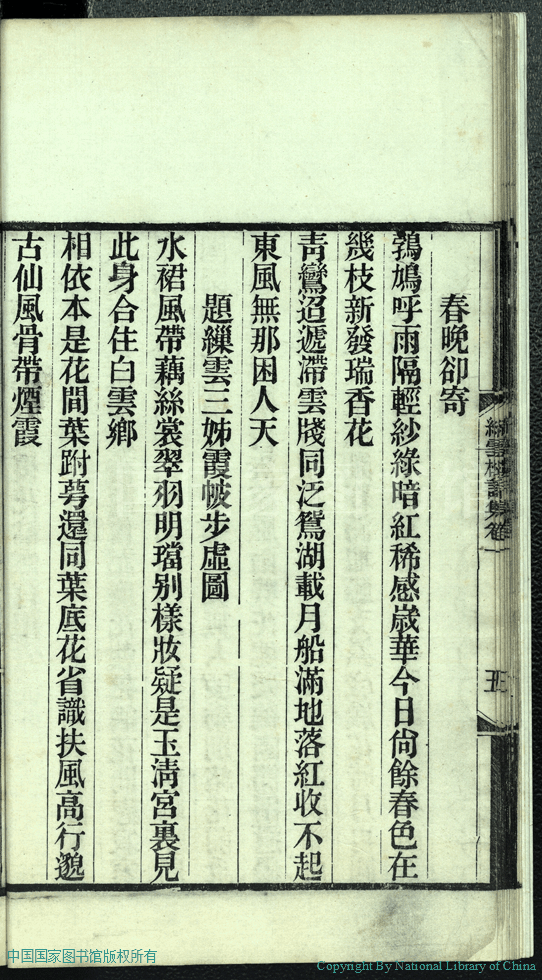 春晚卻寄
鵓鳩呼雨隔輕紗綠暗紅稀感歲華今日尙餘春色在
幾枝新發瑞香花
靑鸞迢遞滯雲牋同泛鴛湖載月船滿地落紅收不起
東風無那困人天
題繅雲三姊霞帔步虛圖
水裙風帶藕絲裳翠羽明璫别樣妝疑是玉淸宮裏見
此身合住白雲鄉
相依本是花間葉跗萼還同葉底花省識扶風高行邈
古仙風骨帶煙霞
五
中国国家图书馆版权所有
Copyright By National Library of China